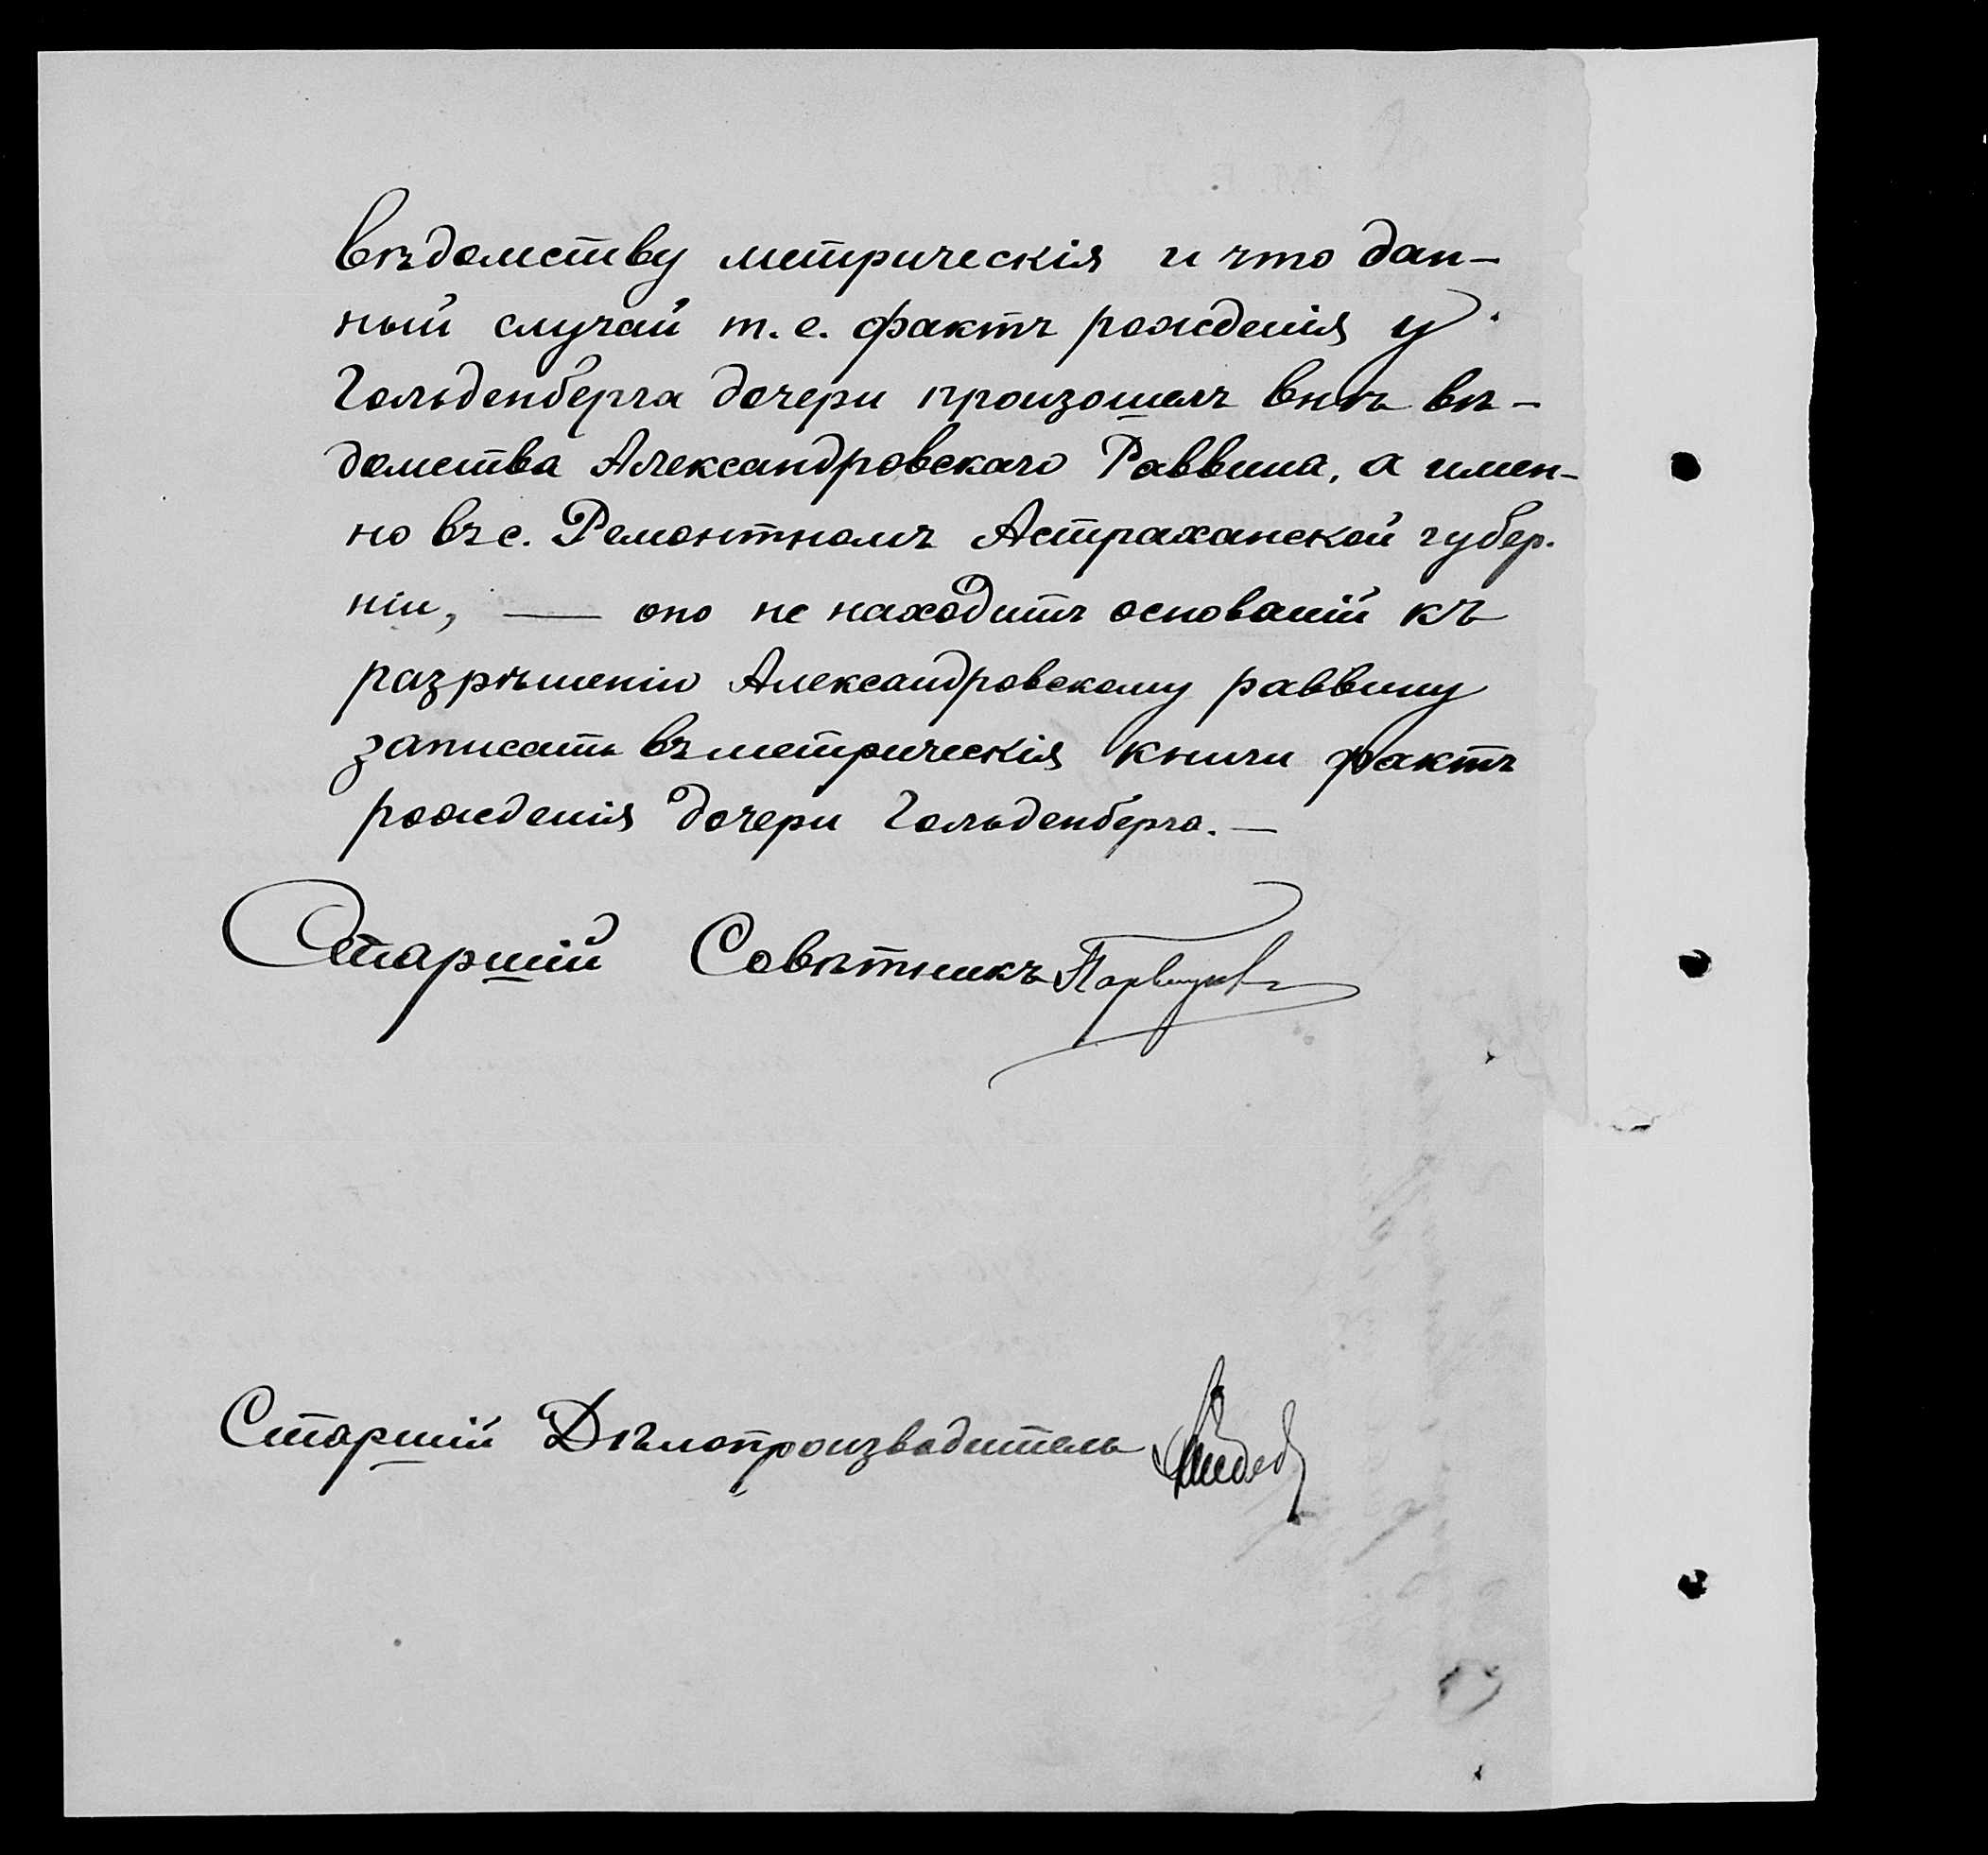 вѣдомству метрическія и что дан-
ный случай т. е. фактъ рожденія у
Гольденберга дочери произошелъ внѣ вѣ-
домства Александровскаго Раввина, а имен-
но въ с. Ремонтномъ Астраханской губер.
ніи, — оно не находитъ основаній къ
разрѣшенію Александровскому раввину
записать въ метрическія книги фактъ
рожденія дочери Гольденберга. —
Старшій Совѣтникъ
Старшій Дѣлопроизводитель